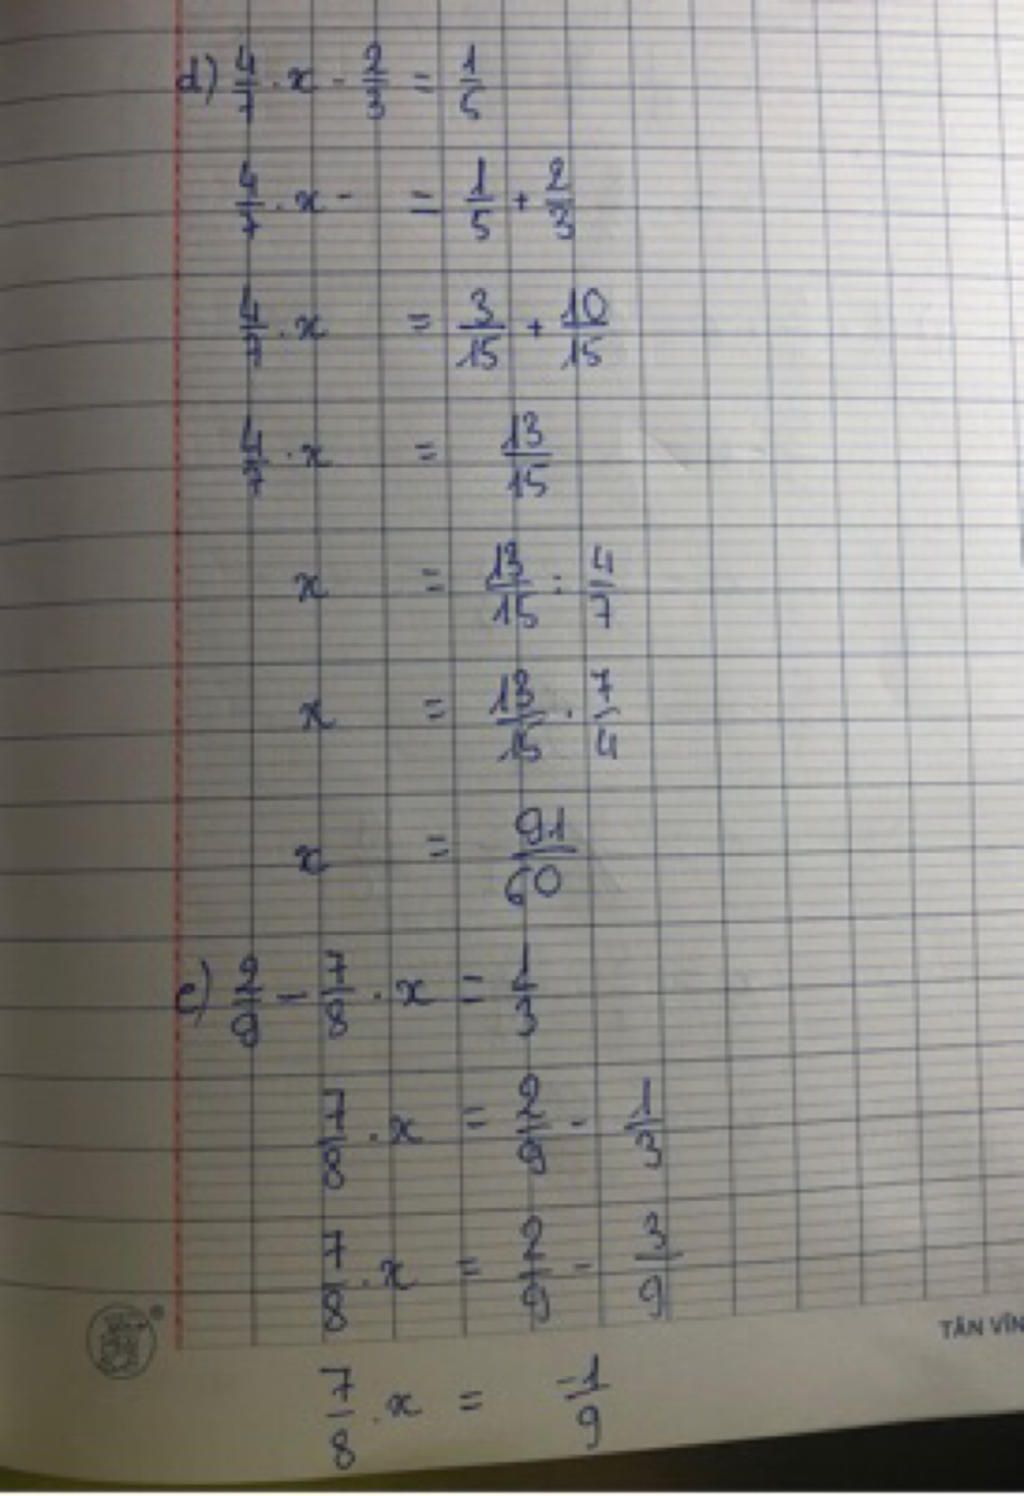 d) 4/7 . x - 2/3 = 1/5
4/7 . x - = 1/5 + 2/3
4/7 . x = 3/15 + 10/15
4/7 . x = 13/15
x = 13/15 : 4/7
x = 13/15 . 7/4
x = 91/60
e) 2/9 - 7/8 . x = 1/3
7/8 . x = 2/9 - 1/3
7/8 . x = 2/9 - 3/9
TÂN VĨN
7/8 . x = -1/9